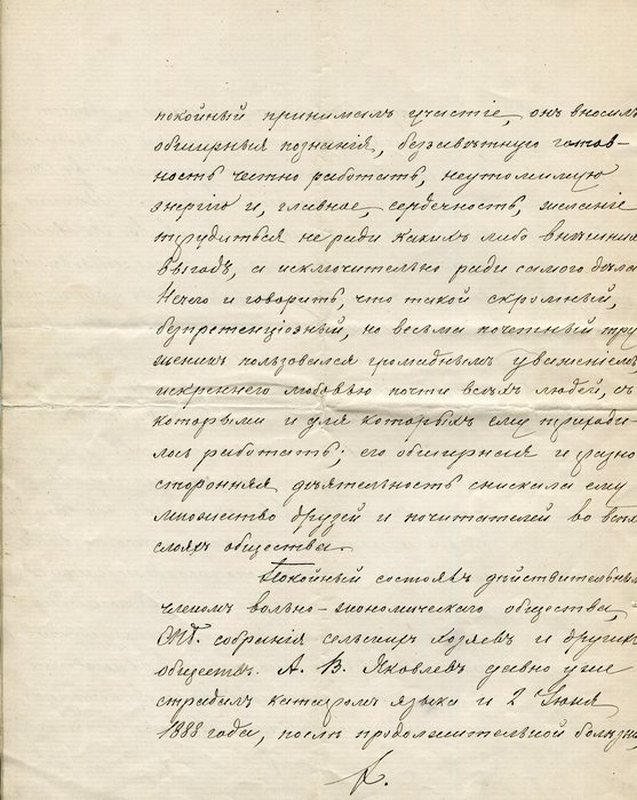 покойный принималъ участіе, онъ вносилъ
обширныя познанія, беззавѣтную готов-
ность честно работать, неутомимую
энергію и, главное, сердечность, желаніе
трудиться не ради какихъ либо внѣшнихъ
выгодъ, а исключительно ради самого дѣла.
Нечего и говорить, что такой скромный,
безпретенціозный, но весьма почетный тру
женикъ пользовался громаднымъ уваженіемъ,
искреннею любовью почти всѣхъ людей, съ
которыми и для которыхъ ему приходи-
лось работать; его обширная и разно
сторонняя дѣятельность снискала ему
множество друзей и почитателей во всѣхъ
слояхъ общества.
Покойный состоялъ дѣйствительнымъ
членомъ вольно-экономическаго общества,
СПб. собранія сельскихъ хозяевъ и другихъ
обществъ. А. В. Яковлевъ давно уже
страдалъ катаромъ языка и 2 Іюня
1888 года, послѣ продолжительной болѣзни,